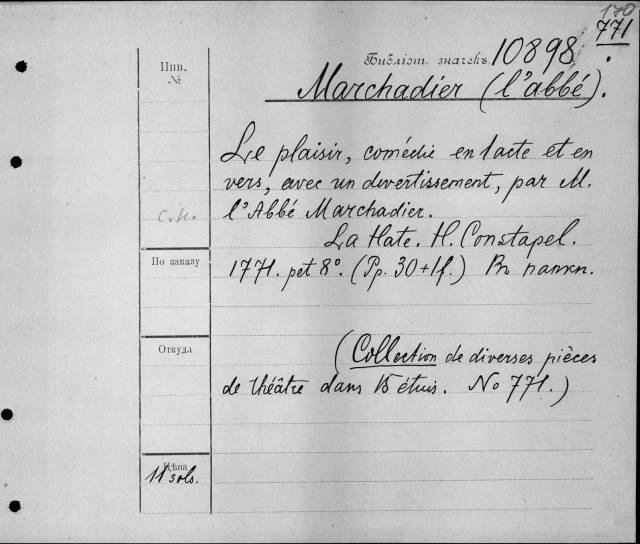 170
771
Инв.
№
Библіот. значекъ. 10898.
Marchadier (l'abbé).
Le plaisir, comédie en 1 acte et en
vers, avec un divertissement, par M.
l'Abbé Marchadier.
С.И.
La Haie. H. Constapel.
По заказу
1771. pet 8°. (Pp. 30+1f.) Въ папкѣ.
Откуда
(Collection de diverses pièces
de théâtre dans 15 étuis. No 771.)
Цѣна
11 sols.